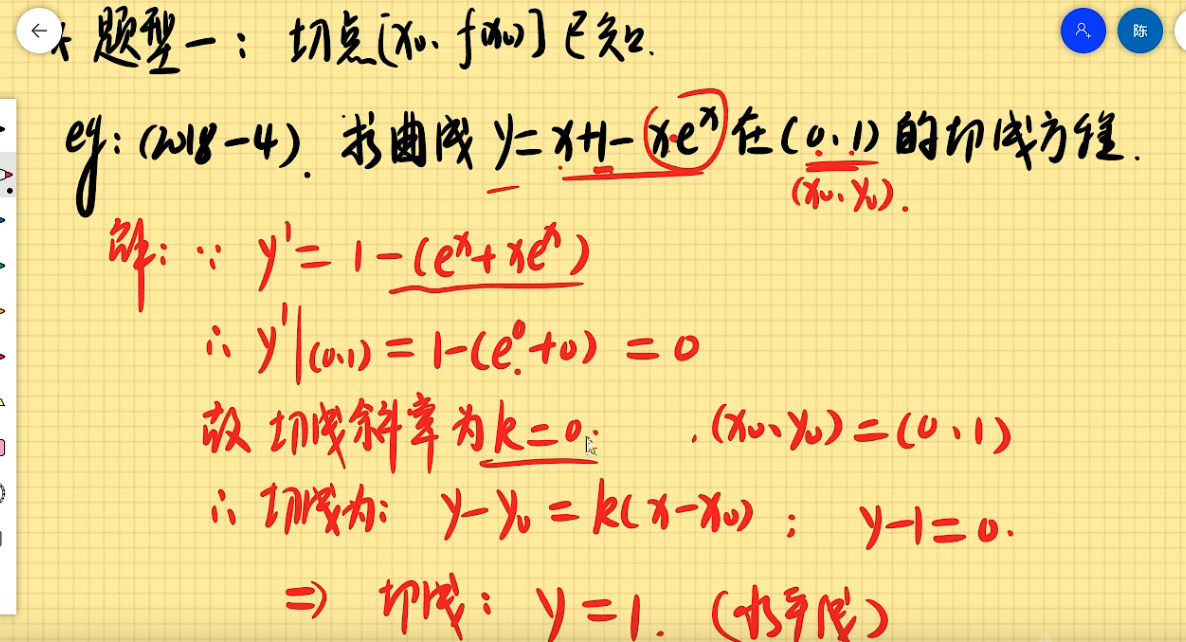 题型一：切点[x₀、f(x₀)]已知.
陈
eg：(2018-4). 求曲线 y=x+1-xeˣ 在(0、1)的切线方程.
(x₀、y₀).
解：∵ y'=1-(eˣ+xeˣ)
∴ y'|(0、1)=1-(e⁰+0)=0
故切线斜率为k=0. (x₀、y₀)=(0、1)
∴ 切线为：y-y₀=k(x-x₀)； y-1=0.
⇒ 切线：y=1. (水平线)